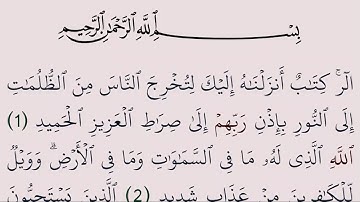 بِسْمِ ٱللَّهِ ٱلرَّحْمَٰنِ ٱلرَّحِيمِ
الٓرۚ كِتَابٌ أَنزَلْنَاهُ إِلَيْكَ لِتُخْرِجَ ٱلنَّاسَ مِنَ ٱلظُّلُمَاتِ
إِلَى ٱلنُّورِ بِإِذْنِ رَبِّهِمْ إِلَىٰ صِرَاطِ ٱلْعَزِيزِ ٱلْحَمِيدِ (1)
ٱللَّهِ ٱلَّذِى لَهُۥ مَا فِى ٱلسَّمَاوَاتِ وَمَا فِى ٱلْأَرْضِۗ وَوَيْلٌ
لِّلْكَافِرِينَ مِنْ عَذَابٍ شَدِيدٍ (2) ٱلَّذِينَ يَسْتَحِبُّونَ